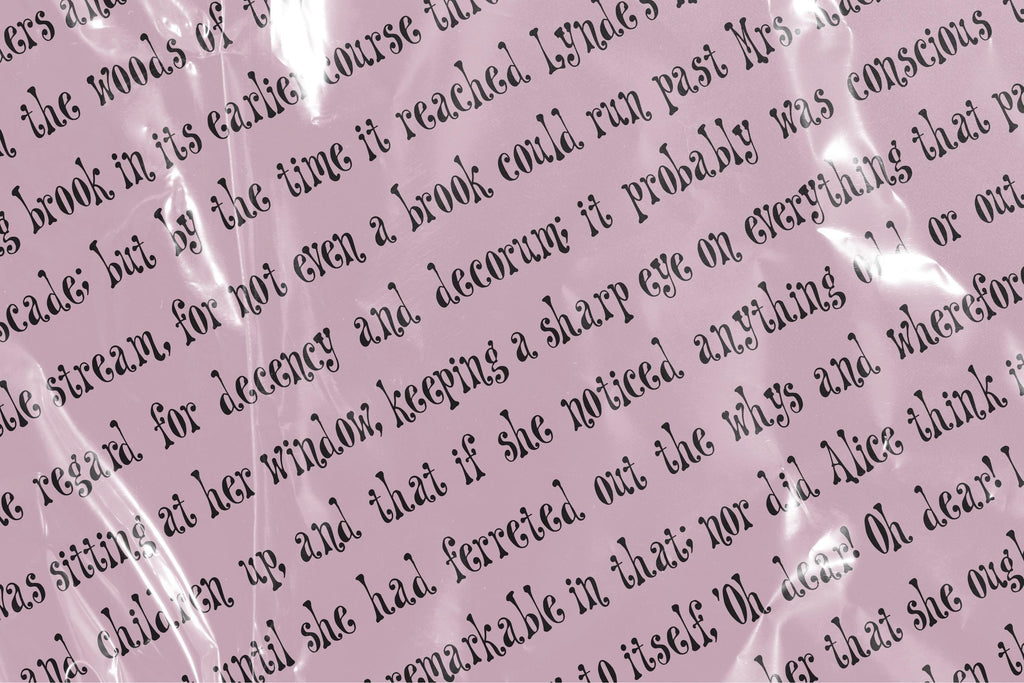 ders and
n the woods of th
g brook in its earlier course thro
scade; but by the time it reached Lynde's
tle stream, for not even a brook could run past Mrs. Rach
e regard for decency and decorum; it probably was conscious t
was sitting at her window, keeping a sharp eye on everything that pa
and children up, and that if she noticed anything odd or out
until she had ferreted out the whys and wherefore
remarkable in that; nor did Alice think it
to itself, 'Oh dear! Oh dear! I
her that she ough
en th